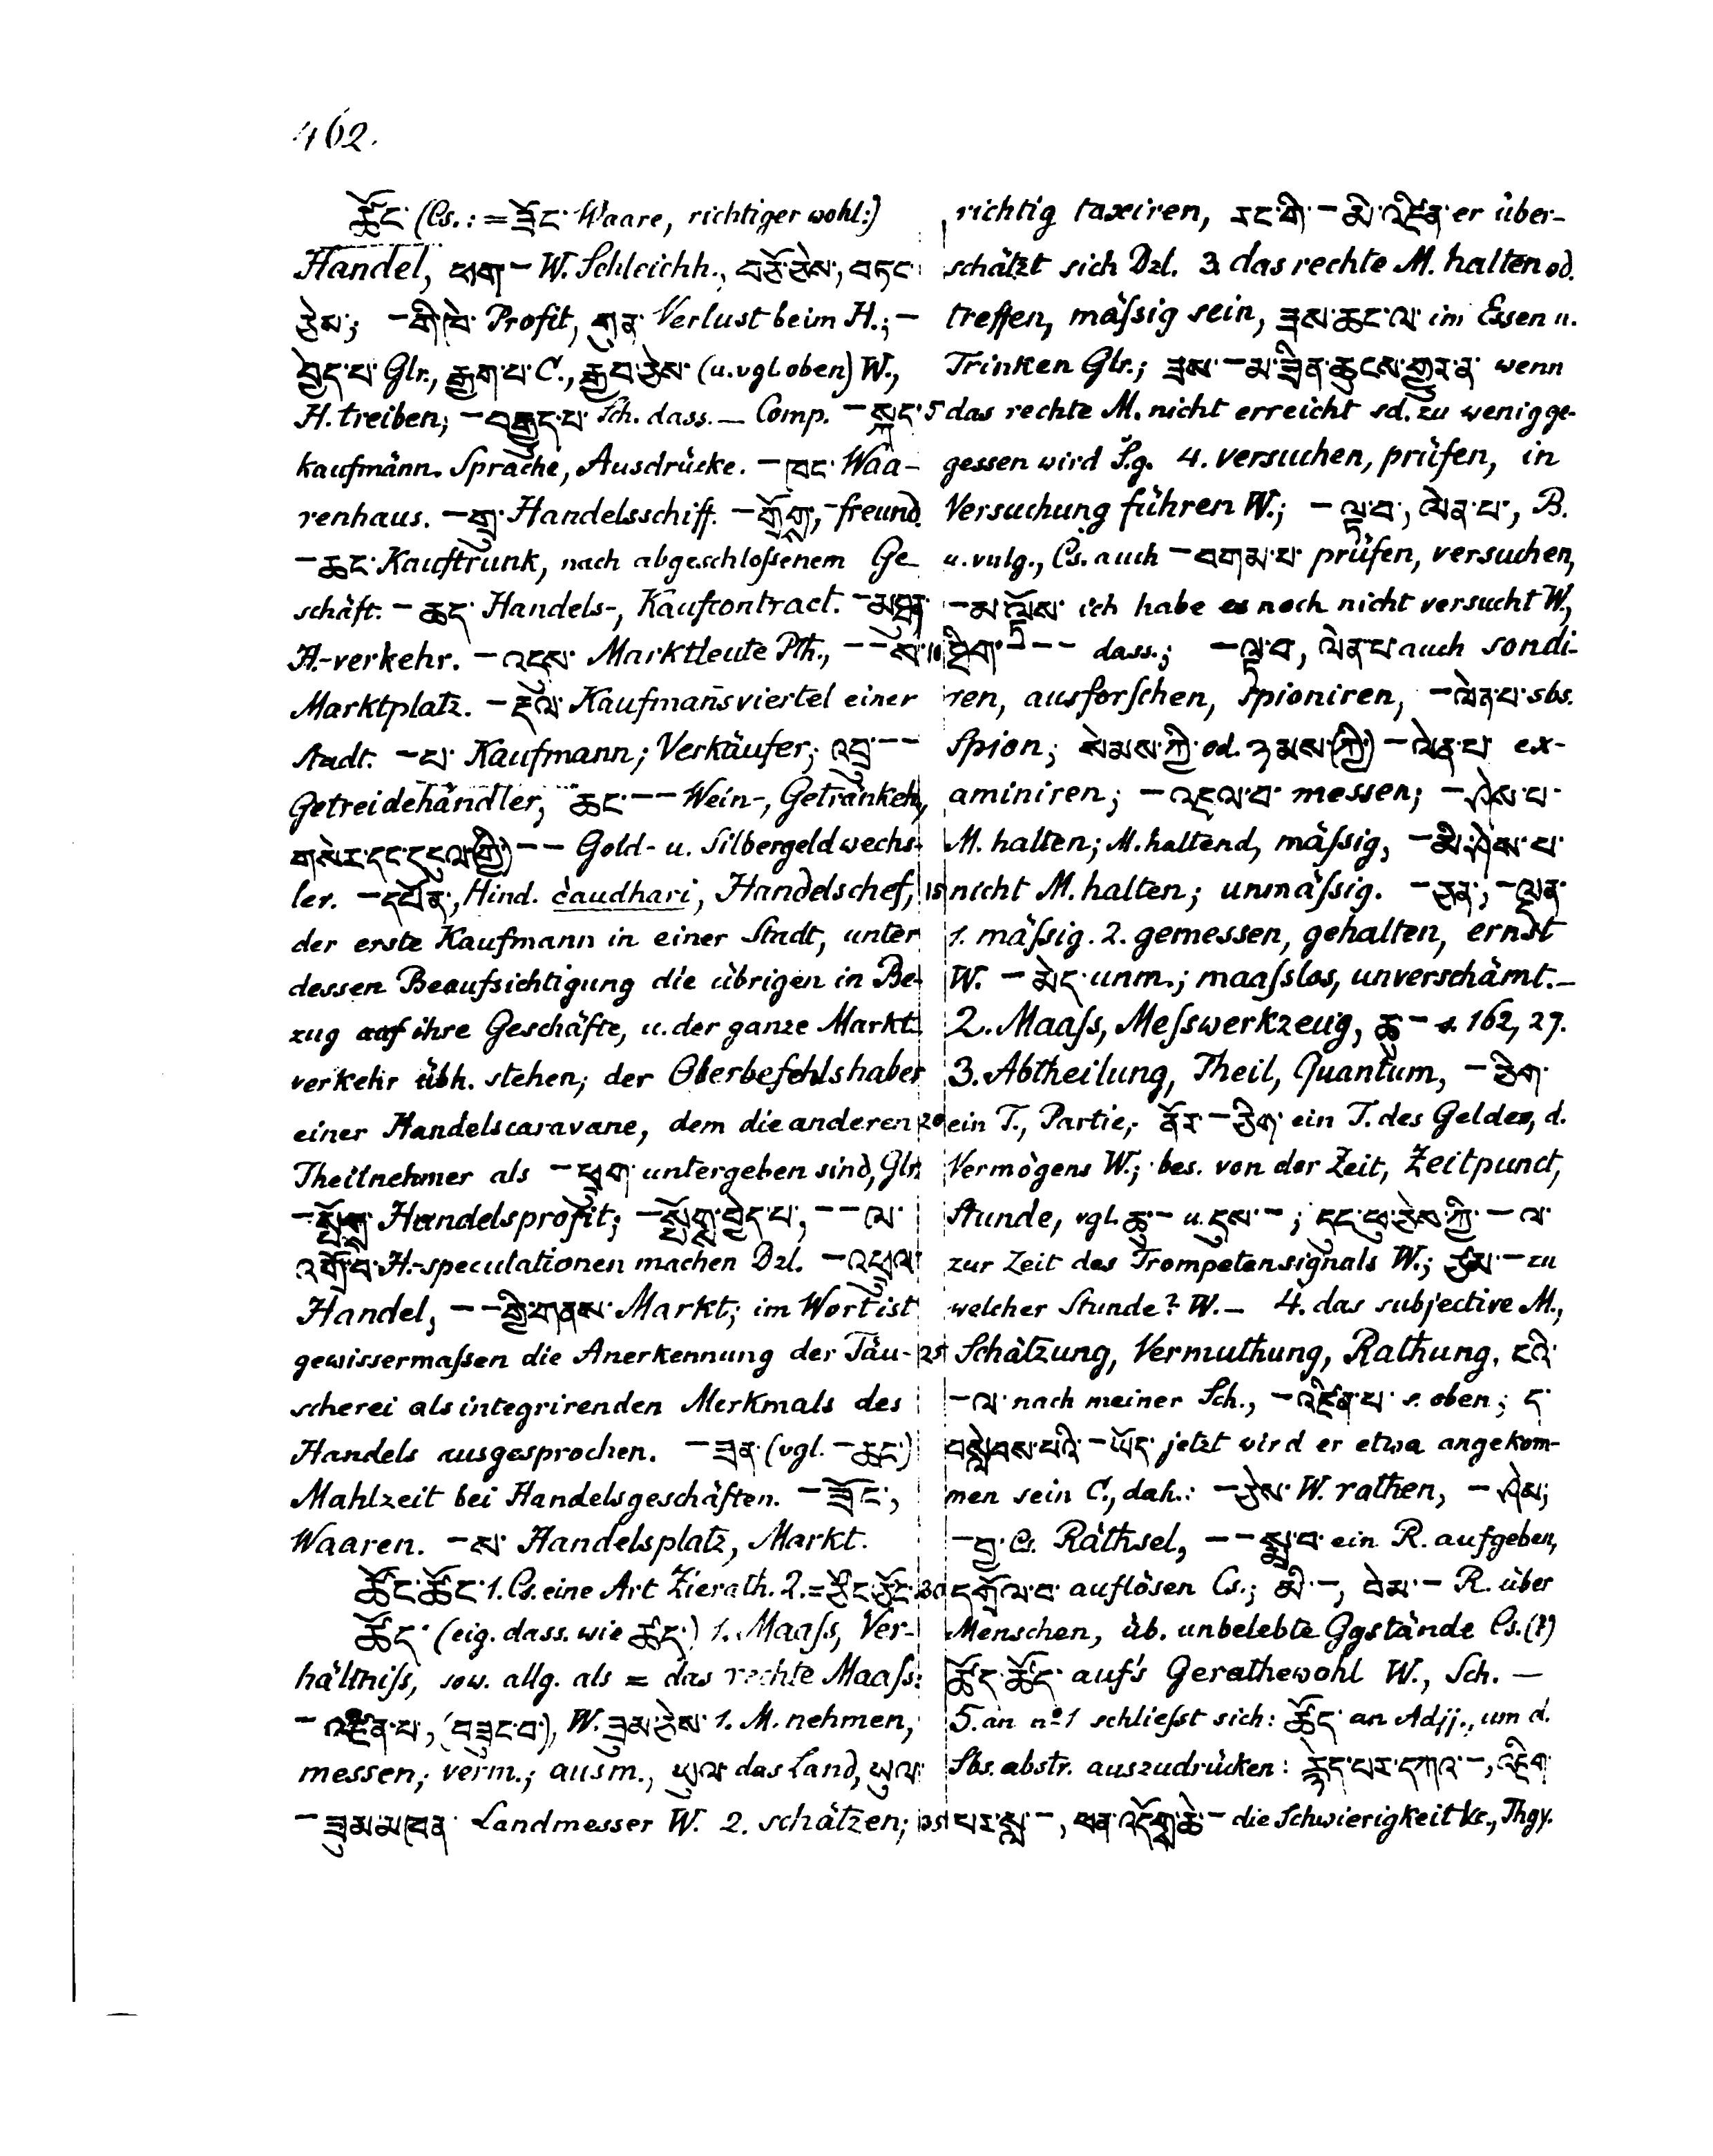 462.
ཚོང་ (Cs.: = ཟོང་ Waare, richtiger wohl:)
Handel, ཕག་ – W. Schleichh., བཅོ་ཅེས་, བཏང་
ཅེས་; – གི་ཁེ་ Profit, གུན་ Verlust beim H.; –
བྱེད་པ་ Glr., རྒྱག་པ་ C., རྒྱབ་ཅེས་ (u. vgl. oben) W.,
H. treiben; – བརྒྱད་པ་ Sch. dass. — Comp. – སྐད་
kaufmänn. Sprache, Ausdrücke. – ཁང་ Waa-
renhaus. – གྲུ་ Handelsschiff. – གྲོགས་, – freund.
– ཆང་ Kauftrunk, nach abgeschloßenem Ge-
schäft. – ཆད་ Handels-, Kaufcontract. – མཐུན་
H.-verkehr. – འདུས་ Marktleute Pth., – – ས་
Marktplatz. – རྡལ་ Kaufmañsviertel einer
Stadt. – པ་ Kaufmann; Verkäufer; འབྲུ་ – –
Getreidehändler, ཆང་ – – Wein-, Getränkeh.,
གསེར་དང་དངུལ་(གྱི་) – – Gold- u. Silbergeldwechs-
ler. – དཔོན་, Hind. c̀audhari, Handelschef,
der erste Kaufmann in einer Stadt, unter
dessen Beaufsichtigung die übrigen in Be-
zug auf ihre Geschäfte, u. der ganze Markt
verkehr übh. stehen; der Oberbefehlshaber
einer Handelscaravane, dem die anderen
Theilnehmer als – ཕྲུག་ untergeben sind, Glr.
– སྤོགས་ Handelsprofit; – སྤོགས་བྱེད་པ་, – – ལ་
འགྲོ་བ་ H.-speculationen machen Dzl. – འཕྲུལ་
Handel, – – གྱི་གནས་ Markt; im Wort ist
gewissermaßen die Anerkennung der Täu-
scherei als integrirenden Merkmals des
Handels ausgesprochen. – ཟན་ (vgl. – ཆང་)
Mahlzeit bei Handelsgeschäften. – ཟོང་,
Waaren. – ས་ Handelsplatz, Markt.
ཚོང་ཚོང་ 1. Cs. eine Art Zierath. 2. = ཅོང་ཅོང་
ཚོད་ (eig. dass. wie ཚད་) 1. Maaſs, Ver-
hältniſs, sow. allg. als = das rechte Maaſs:
– འཛིན་པ་, (བཟུང་བ་), W. ཟུམ་ཅེས་ 1. M. nehmen,
messen; verm.; ausm., ཡུལ་ das Land, ཡུལ་
– ཟུམ་མཁན་ Landmesser W. 2. schätzen;
richtig taxiren, རང་གི་ – མི་འཛིན་ er über-
schätzt sich Dzl. 3. das rechte M. halten od.
treffen, mäſsig sein, ཟས་ཆང་ལ་ im Essen u.
Trinken Glr.; ཟས་ – མ་ཟིན་ཆུངས་གྱུར་ན་ wenn
5 das rechte M. nicht erreicht sd. zu wenig ge-
gessen wird S.g. 4. versuchen, prüfen, in
Versuchung führen W.; – ལྟ་བ་, ལེན་པ་, B.
u. vulg., Cs. auch – བགམ་པ་ prüfen, versuchen,
– མ་ལྟོས་ ich habe es noch nicht versucht W.,
10 – – dass.; – ལྟ་བ་, ལེན་པ་ auch sondi-
ren, ausforschen, spioniren, – ལེན་པ་ sbs.
Spion; སེམས་ཀྱི་ od. ཉམས་(ཀྱི་) – ལེན་པ་ ex-
aminiren; – འཇལ་བ་ messen; – ཤེས་པ་
M. halten; M. haltend, mäſsig, – མི་ཤེས་པ་
15 nicht M. halten; unmäſsig. – ཅན་, – ལྡན་
1. mäſsig. 2. gemessen, gehalten, ernst
W. – མེད་ unm.; maaſslos, unverschämt. —
2. Maaſs, Meſswerkzeug, ཆུ་ – s. 162, 27.
3. Abtheilung, Theil, Quantum, – ཅིག་
20 ein T., Partie, ནོར་ – ཅིག་ ein T. des Geldes, d.
Vermögens W.; bes. von der Zeit, Zeitpunct,
Stunde, vgl. ཆུ་ – u. དུས་ –; དུང་ཕུ་ཅེས་ཀྱི་ – ལ་
zur Zeit des Trompetensignals W.; ཙམ་ – zu
welcher Stunde? W. — 4. das subjective M.,
25 Schätzung, Vermuthung, Rathung. ངའི་
– ལ་ nach meiner Sch., – འཛིན་པ་ s. oben; ད་
བསླེབས་པའི་ – ཡོད་ jetzt wird er etwa angekom-
men sein C., dah.: – ཅེས་ W. rathen, – ཤེས;
– བྱ་ Cs. Räthsel, – – སྨྲ་བ་ ein R. aufgeben,
30 དགྲོལ་བ་ auflösen Cs.; མི་ –, བེམ་ – R. über
Menschen, üb. unbelebte Ggstände Cs. (?)
ཚོད་ཚོད་ auf's Gerathewohl W., Sch. —
5. an nº 1 schlieſst sich: ཚོད་ an Adjj., um d.
Sbs. abstr. auszudrücken: རྙེད་པར་དཀའ་ –, འཇིག་
35 པར་སླ་ –, ཕན་འདོགས་ཆེ་ – die Schwierigkeit &c., Thgy.